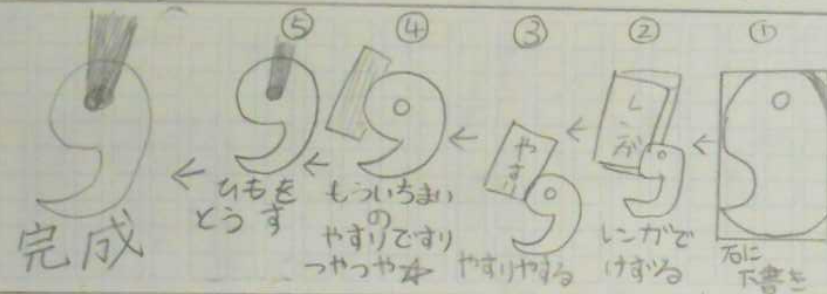 ①
石に
下書き
②
レンガ
レンガで
けずる
③
やすり
やすりやする
④
もういちまい
の
やすりですり
つやつや☆
⑤
ひもを
とうす
完成